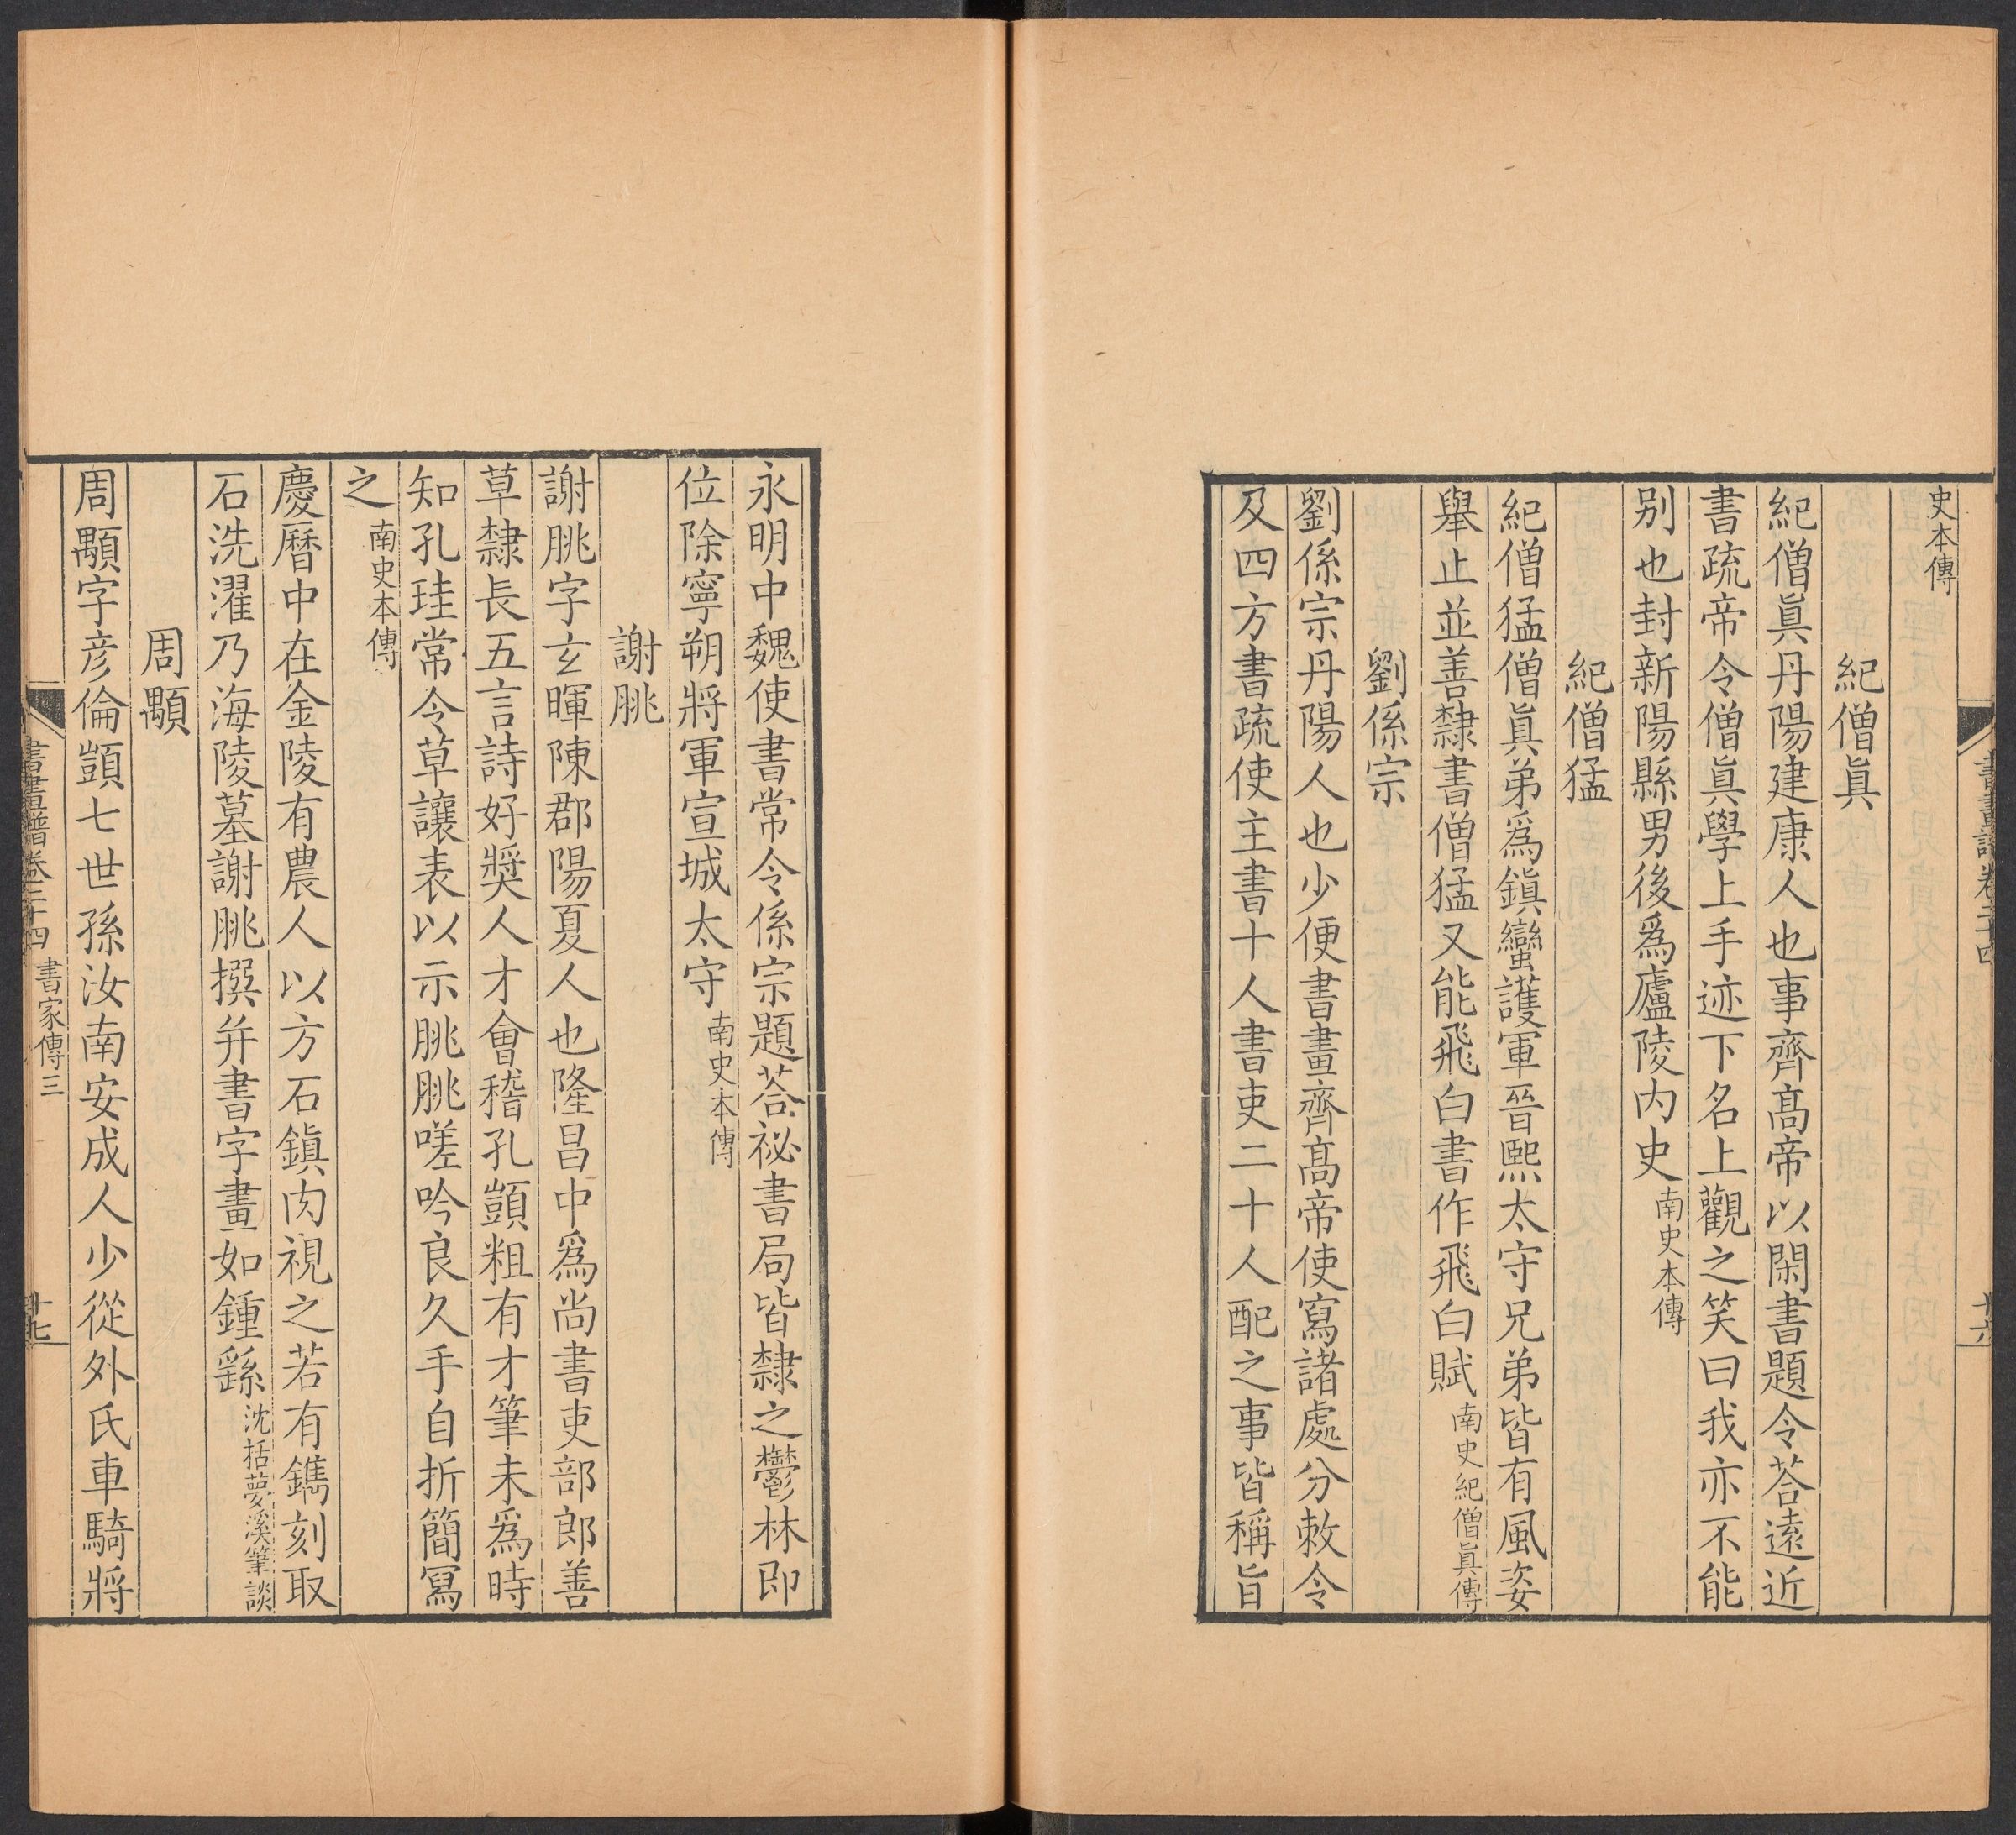 史本傳
紀僧眞
紀僧眞丹陽建康人也事齊髙帝以閑書題令荅遠近
書疏帝令僧眞學上手迹下名上觀之笑曰我亦不能
别也封新陽縣男後爲廬陵内史南史本傳
紀僧猛
紀僧猛僧眞弟爲鎭蠻護軍晉熙太守兄弟皆有風姿
舉止並善隸書僧猛又能飛白書作飛白賦南史紀僧眞傳
劉係宗
劉係宗丹陽人也少便書畫齊髙帝使寫諸處分敕令
及四方書疏使主書十人書吏二十人配之事皆稱旨
書畫譜卷二十四
十六
永明中魏使書常令係宗題荅祕書局皆隸之鬱林即
位除寧朔將軍宣城太守南史本傳
謝脁
謝脁字玄暉陳郡陽夏人也隆昌中爲尚書吏部郎善
草隸長五言詩好奬人才會稽孔顗粗有才筆未爲時
知孔珪常令草讓表以示脁脁嗟吟良久手自折簡寫
之南史本傳
慶曆中在金陵有農人以方石鎭肉視之若有鐫刻取
石洗濯乃海陵墓謝脁撰并書字畫如鍾繇沈括夢溪筆談
周顒
周顒字彦倫顗七世孫汝南安成人少從外氏車騎將
書畫譜卷二十四 書家傳三
十七